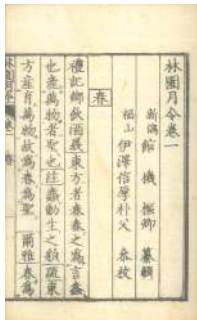 林園月令卷一
新潟 館 機 樞卿 纂輯
福山 伊澤信厚朴父 叅校
春
禮記鄉飲酒義東方者春春之為言蠢
也產萬物者聖也注蠢動生之貌疏東
方產育萬物故為春為聖 爾雅春為
林園月令 卷一 春